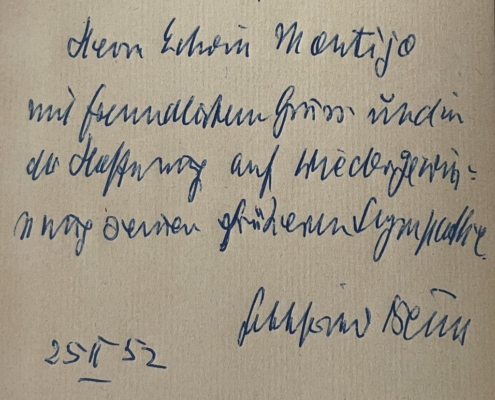 Herrn Edwin Montijo
mit freundlichem Gruss und in
der Hoffnung auf Wiedergewin-
nung seiner früheren Sympathie.
Gottfried Benn
25 II 52